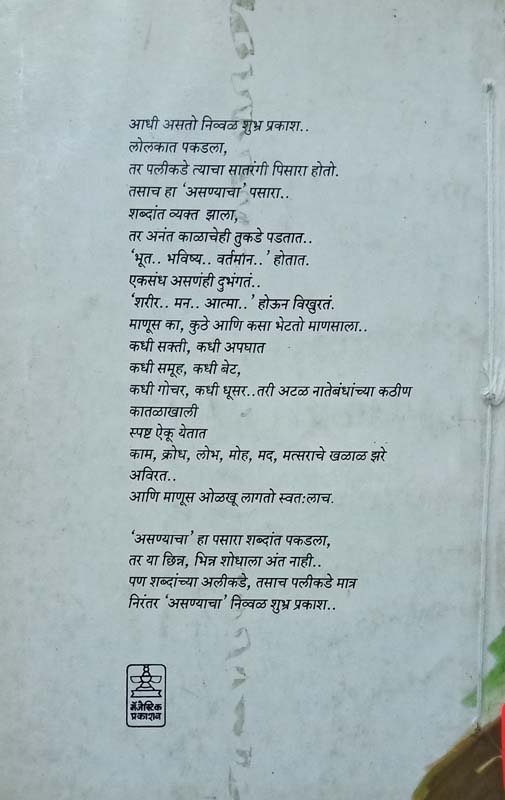 आधी असतो निव्वळ शुभ्र प्रकाश..
लोलकात पकडला,
तर पलीकडे त्याचा सातरंगी पिसारा होतो.
तसाच हा ‘असण्याचा’ पसारा..
शब्दांत व्यक्त झाला,
तर अनंत काळाचेही तुकडे पडतात..
‘भूत.. भविष्य.. वर्तमान..’ होतात.
एकसंध असणंही दुभंगतं..
‘शरीर.. मन.. आत्मा..’ होऊन विखुरतं.
माणूस का, कुठे आणि कसा भेटतो माणसाला..
कधी सक्ती, कधी अपघात
कधी समूह, कधी बेट,
कधी गोचर, कधी धूसर..तरी अटळ नातेबंधांच्या कठीण
कातळाखाली
स्पष्ट ऐकू येतात
काम, क्रोध, लोभ, मोह, मद, मत्सराचे खळाळ झरे
अविरत..
आणि माणूस ओळखू लागतो स्वत:लाच.
‘असण्याचा’ हा पसारा शब्दांत पकडला,
तर या छिन्न, भिन्न शोधाला अंत नाही..
पण शब्दांच्या अलीकडे, तसाच पलीकडे मात्र
निरंतर ‘असण्याचा’ निव्वळ शुभ्र प्रकाश..
मॅजेस्टिक
प्रकाशन